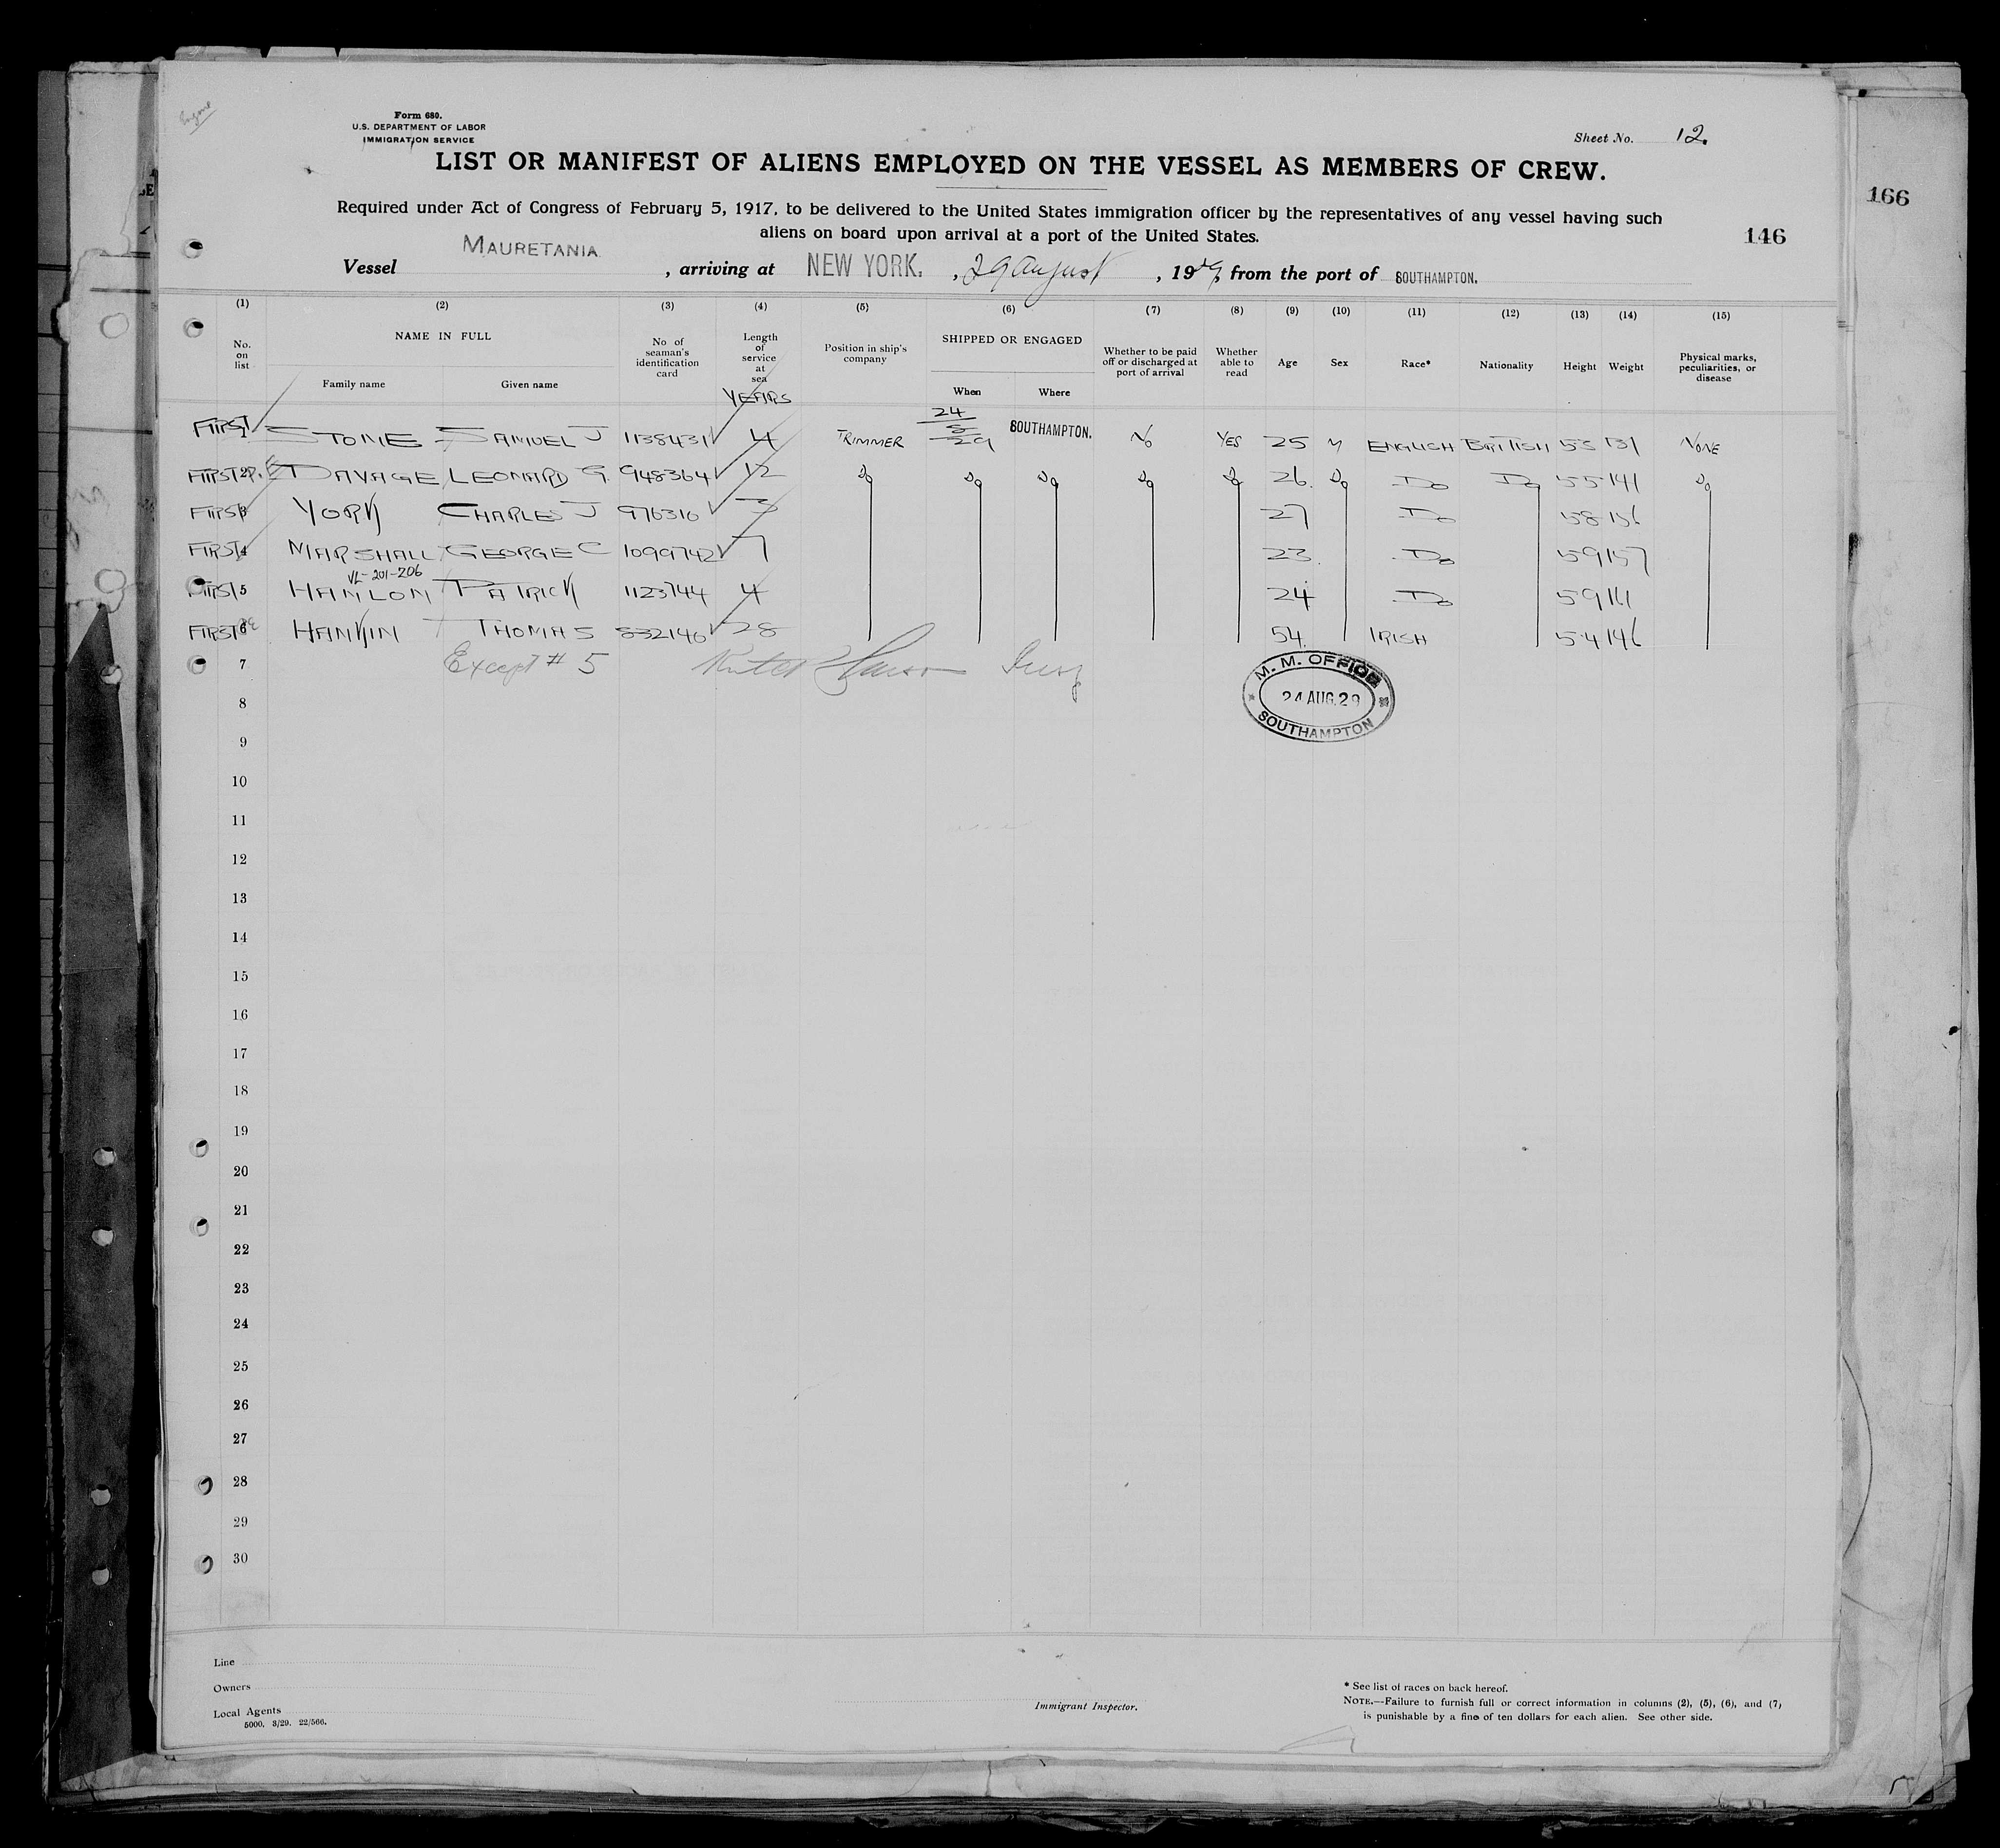 Form 680.
U.S. DEPARTMENT OF LABOR
IMMIGRATION SERVICE
Sheet No. 12.
LIST OR MANIFEST OF ALIENS EMPLOYED ON THE VESSEL AS MEMBERS OF CREW.
166
Required under Act of Congress of February 5, 1917, to be delivered to the United States immigration officer by the representatives of any vessel having such
aliens on board upon arrival at a port of the United States.
146
Vessel MAURETANIA, arriving at NEW YORK., 29 August, 1929, from the port of SOUTHAMPTON.
(1) (2) (3) (4) (5) (6) (7) (8) (9) (10) (11) (12) (13) (14) (15)
No. on list
NAME IN FULL
Family name Given name
No of seaman's identification card
Length of service at sea
YEARS
Position in ship's company
SHIPPED OR ENGAGED
When Where
Whether to be paid off or discharged at port of arrival
Whether able to read
Age
Sex
Race*
Nationality
Height
Weight
Physical marks, peculiarities, or disease
FIRST 1 STONE SAMUEL J 1138431 4 TRIMMER 24/8/29 SOUTHAMPTON. NO YES 25 M ENGLISH BRITISH 53 131 NONE
FIRST 2 DAVAGE LEONARD G. 948364 12 Do Do Do Do Do 26. Do Do Do 55 141 Do
FIRST 3 YORK CHARLES J 976316 3 27 Do 58 156
FIRST 4 MARSHALL GEORGE C 1099742 7 23. Do 59 157
VL-201-206
FIRST 5 HANLON PATRICK 1123744 4 24 Do 59 161
FIRST 6 HANKIN THOMAS 832146 28 54. IRISH 54 146
7 Except # 5
M. M. OFFICE
24 AUG. 29
SOUTHAMPTON
8
9
10
11
12
13
14
15
16
17
18
19
20
21
22
23
24
25
26
27
28
29
30
Line
Owners
Local Agents
5000. 3/29. 22/566.
Immigrant Inspector.
* See list of races on back hereof.
NOTE.—Failure to furnish full or correct information in columns (2), (5), (6), and (7)
is punishable by a fine of ten dollars for each alien. See other side.